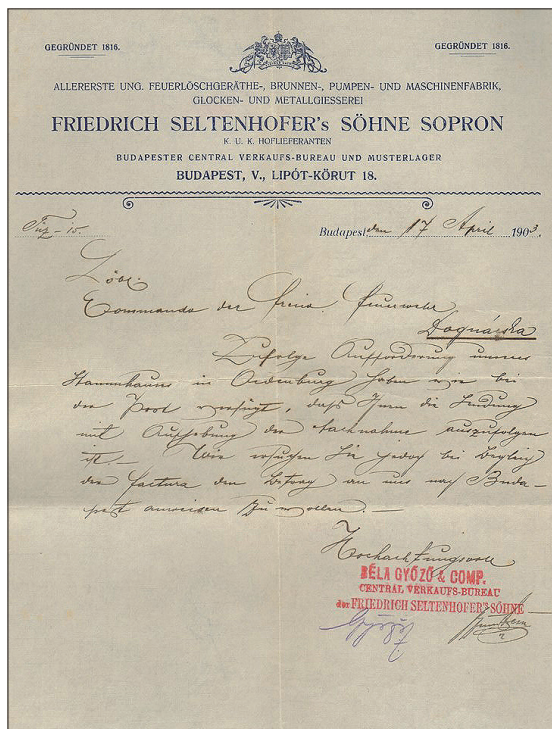 GEGRÜNDET 1816.
GEGRÜNDET 1816.
ALLERERSTE UNG. FEUERLÖSCHGERÄTHE-, BRUNNEN-, PUMPEN- UND MASCHINENFABRIK,
GLOCKEN- UND METALLGIESSEREI
FRIEDRICH SELTENHOFER's SÖHNE SOPRON
K. U. K. HOFLIEFERANTEN
BUDAPESTER CENTRAL VERKAUFS-BUREAU UND MUSTERLAGER
BUDAPEST, V., LIPÓT-KÖRUT 18.
Budapest, den 17 April 1903.
Löbl.
Commando der freiw. Feuerwehr
Dognácska
Zufolge Aufforderung unseres
Stammhauses in Oedenburg haben wir bei
der Post verfügt, daß Ihnen die Sendung
mit Aufhebung der Nachnahme auszufolgen
ist. – Wir ersuchen Sie jedoch bei Begleich
der Factura den Betrag an uns nach Buda-
pest anweisen zu wollen. –
Hochachtungsvoll
BÉLA GYŐZŐ & COMP.
CENTRAL VERKAUFS-BUREAU
der FRIEDRICH SELTENHOFER's SÖHNE